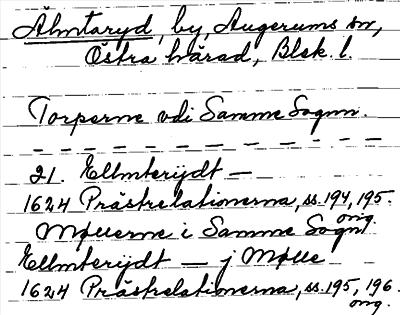 Älmtaryd, by, Augerums sn,
Östra härad, Blek. l.
Torperne udi Samme Sognn.
— — — — — — — — — — —
21. Ellmterijdt —
1624 Prästrelationerna, ss. 194, 195.
orig.
Møllerne i Samme Sogn
Ellmterijdt — j Mølle
1624 Prästrelationerna, ss. 195, 196.
orig.